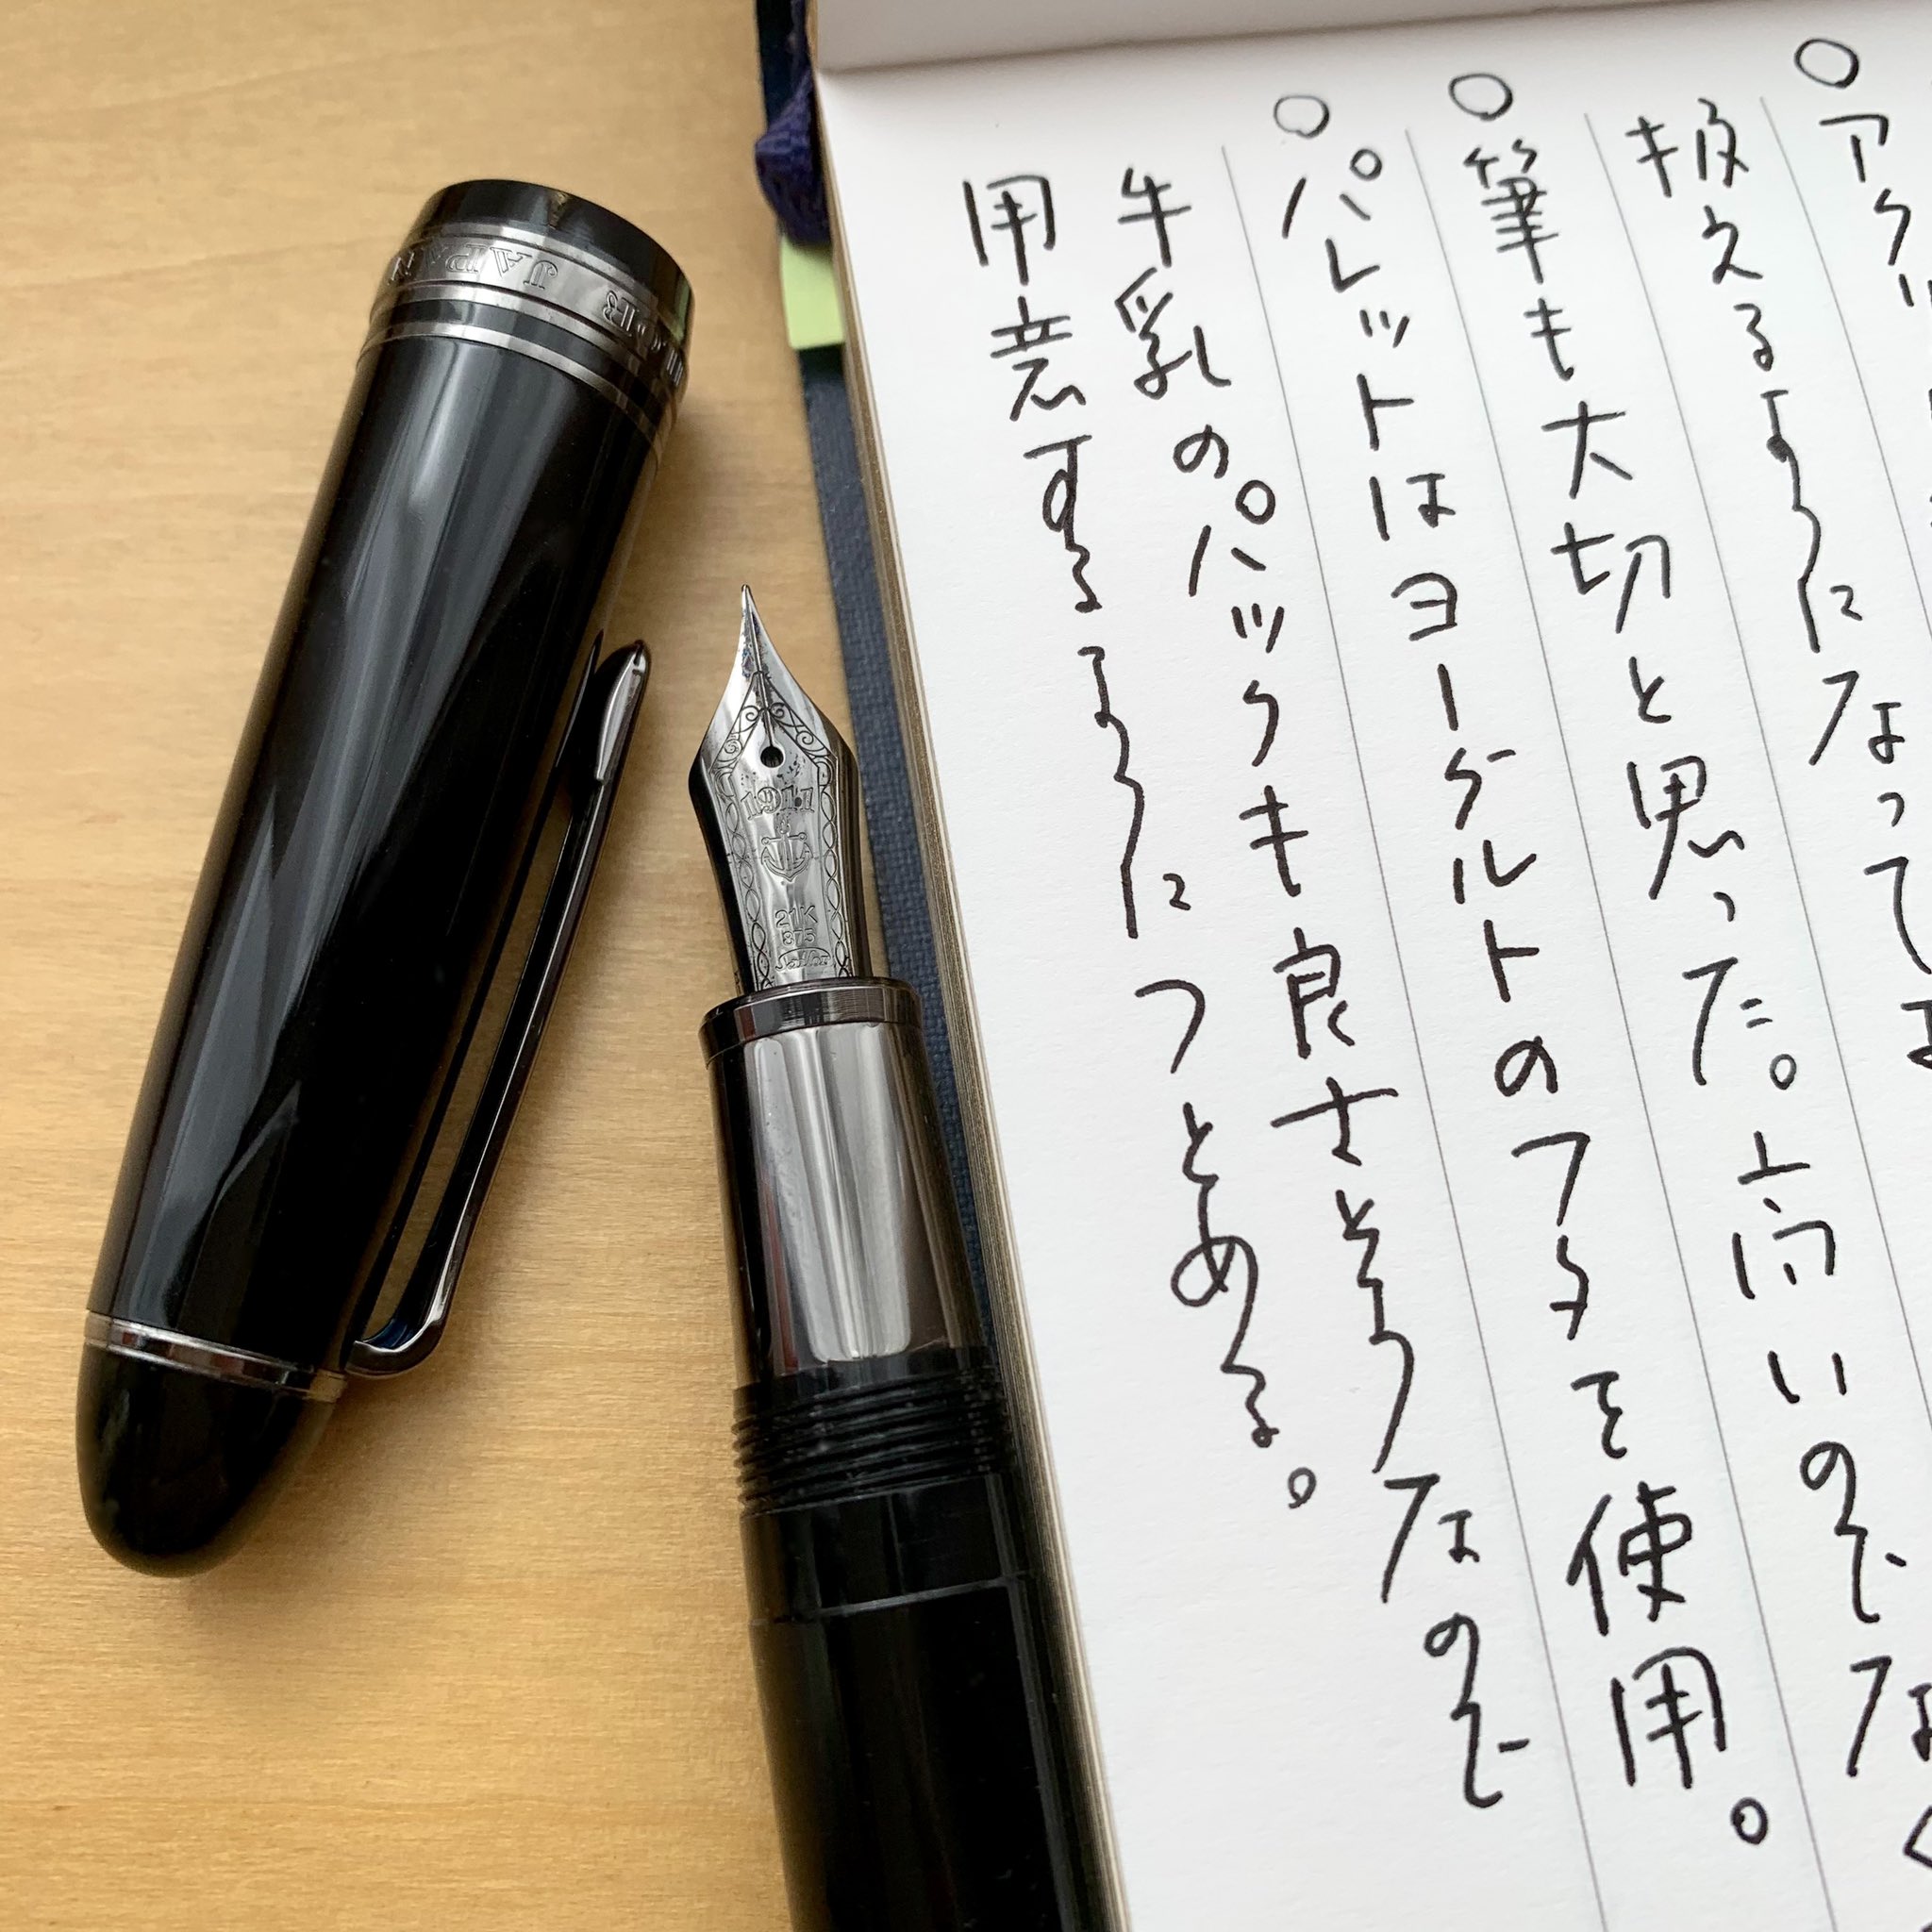 ○アク
扱えるようになって
○筆も大切と思った。高いのでな
○パレットはヨーグルトのフタを使用。
牛乳のパックも良さそうなので
用意するようにつとめる。
JAPAN
1911
21K
875
Sailor